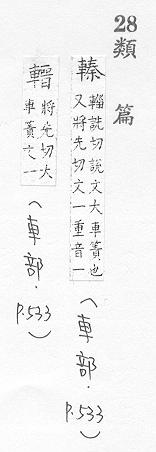 28
類篇
轃
輜詵切說文大車簀也
又將先切文一重音一
(車部.P.533)
將先切大
車簀文一
(車部.P.533)